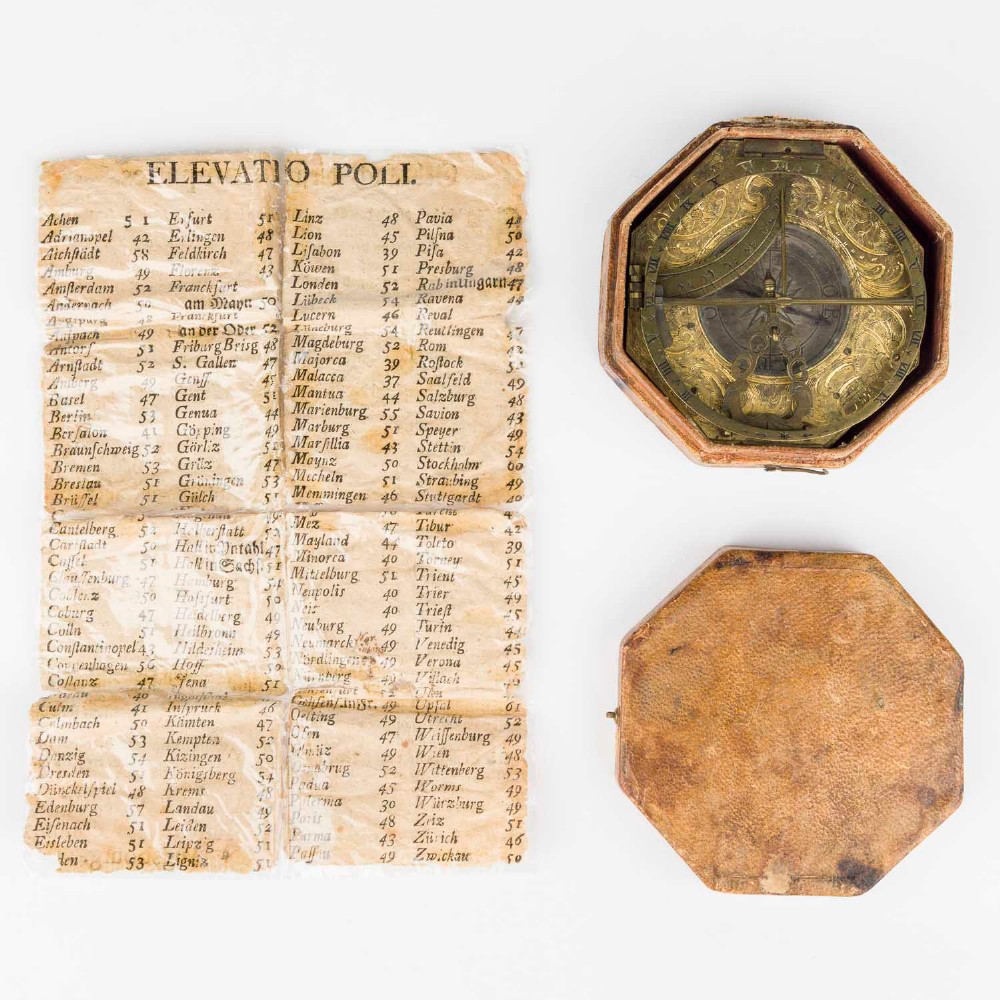 ELEVATIO POLI.
Achen 51
Adrianopel 42
Aichstädt 58
Amburg 49
Amsterdam 52
Andernach 50
Augspurg 48
Anspach 49
Antorf 51
Arnstadt 52
Amberg 49
Basel 47
Berlin 53
Bersalon 41
Braunschweig 52
Bremen 53
Breslau 51
Brüssel 51
Cantelberg 52
Carlstadt 50
Cassel 51
Clausenburg 47
Coblenz 50
Coburg 47
Cölln 51
Constantinopel 43
Coppenhagen 56
Costanz 47
Culm 41
Culmbach 50
Dam 53
Danzig 54
Dresden 51
Dünckelspiel 48
Edenburg 57
Eisenach 51
Eisleben 51
den 53
Erfurt 51
Erlingen 48
Feldkirch 47
Florenz 43
Franckfurt
am Mayn 50
Franckfurt
an der Oder 52
Friburg Brisg 48
S. Gallen 47
Genff 45
Gent 51
Genua 44
Göpping 49
Görliz 51
Gräz 47
Gröningen 53
Gülch 51
Halberstatt 52
Hall in Yntahl 47
Hall in Sachs. 51
Hamburg 54
Hassfurt 50
Heidelberg 49
Heilbronn 49
Hildesheim 53
Hoff 50
Jena 51
Inspruck 46
Kämten 47
Kempten 52
Kizingen 50
Königsberg 54
Krems 48
Landau 49
Leiden 52
Leipzig 51
Ligniz 51
Linz 48
Lion 45
Lisabon 39
Löwen 51
Londen 52
Lübeck 54
Lucern 46
Lüneburg 54
Magdeburg 52
Majorca 39
Malacca 37
Mantua 44
Marienburg 55
Marburg 51
Marsillia 43
Maynz 50
Mecheln 51
Memmingen 46
Mez 47
Mayland 44
Minorca 40
Mittelburg 51
Neapolis 40
Neis 40
Neuburg 49
Neumarck 49
Nördlingen 49
Nürnberg 49
Oetting 49
Ofen 47
Olmüz 49
Osnabrug 52
Padua 45
Palerma 30
Paris 48
Parma 43
Passau 49
Pavia 44
Pilsna 50
Pisa 42
Presburg 48
Rab in Ungarn 47
Ravena 44
Reval
Reutlingen 47
Rom 42
Rostock 54
Saalfeld 49
Salzburg 48
Savion 43
Speyer 49
Stettin 54
Stockholm 60
Straubing 49
Stuttgardt 49
Tibur 42
Toleto 39
Torney 51
Trient 45
Trier 49
Triest 45
Turin 44
Venedig 45
Verona 45
Villach 46
Ulm 48
Upsal 61
Utrecht 52
Weissenburg 49
Wien 48
Wittenberg 53
Worms 49
Würzburg 49
Zeiz 51
Zürich 46
Zwickau 50